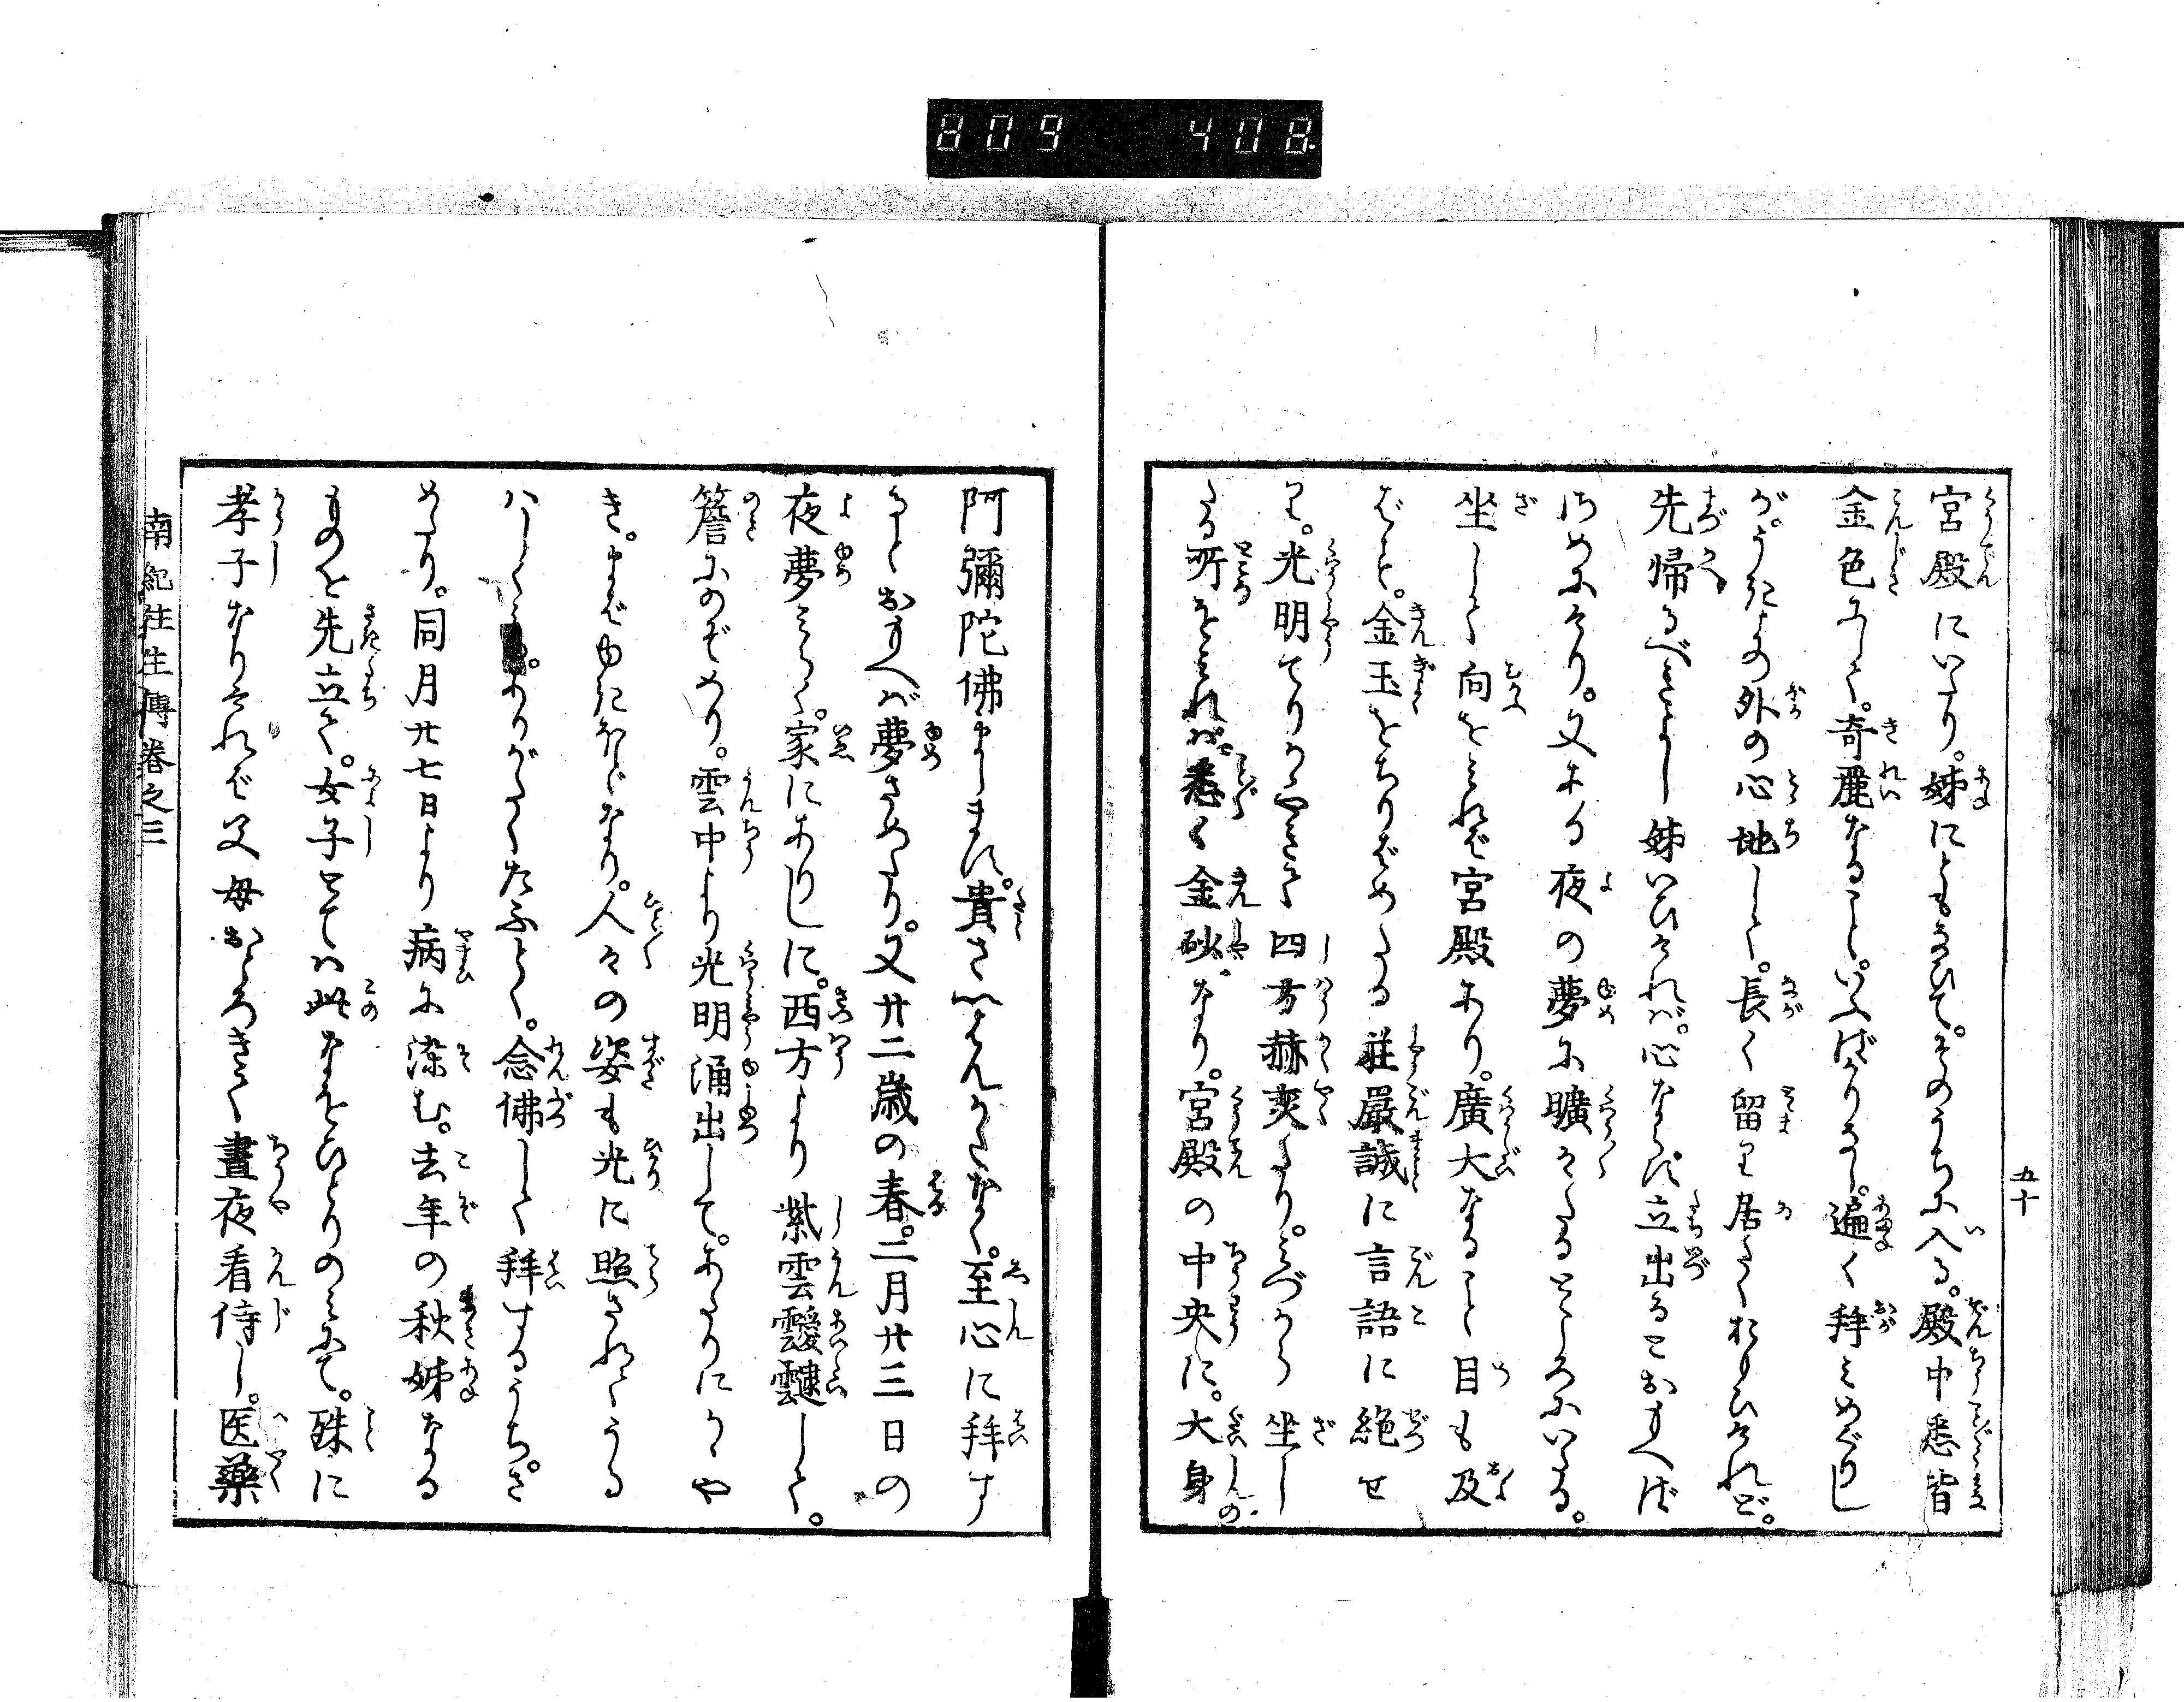 809 408
五十
宮殿にいたり。姊にともなひて。そのうちに入る。殿中悉皆
金色にして。奇麗なること。いふばかりなし。遍く拜みめぐりし
が。うたゝの外の心地して。長く留り居たくおもひけれど。
先帰るべきよし姊いひければ。心ならず立出るとおもへば
ゆめにけり。又ある夜の夢に曠々たるところにいたる。
坐して向をみれば宮殿あり。廣大なること目も及
ばず。金玉をちりばめたる莊嚴誠に言語に絶せ
り。光明てりかゞやきて四方赫奕たり。みづから坐し
たる所をみれば。悉く金砂なり。宮殿の中央に。大身
阿彌陀佛まします。貴さいはんかたなく。至心に拜す
るとおもへば夢さめたり。又廿二歳の春。二月廿三日の
夜夢みらく。家にありしに。西方より紫雲靉靆して。
簷にのぞめり。雲中より光明涌出して。あたりにかゝや
き。まばゆきほどなり。人々の姿も光に照されてうる
はしくみゆ。ありがたくたふとく。念佛して拜するうち。さ
めたり。同月廿七日より病に染む。去年の秋姊なる
ものを先立て。女子とては此なをひとりのみにて。殊に
孝子なりければ父母おどろきて晝夜看侍し。医藥
南紀往生傳卷之三